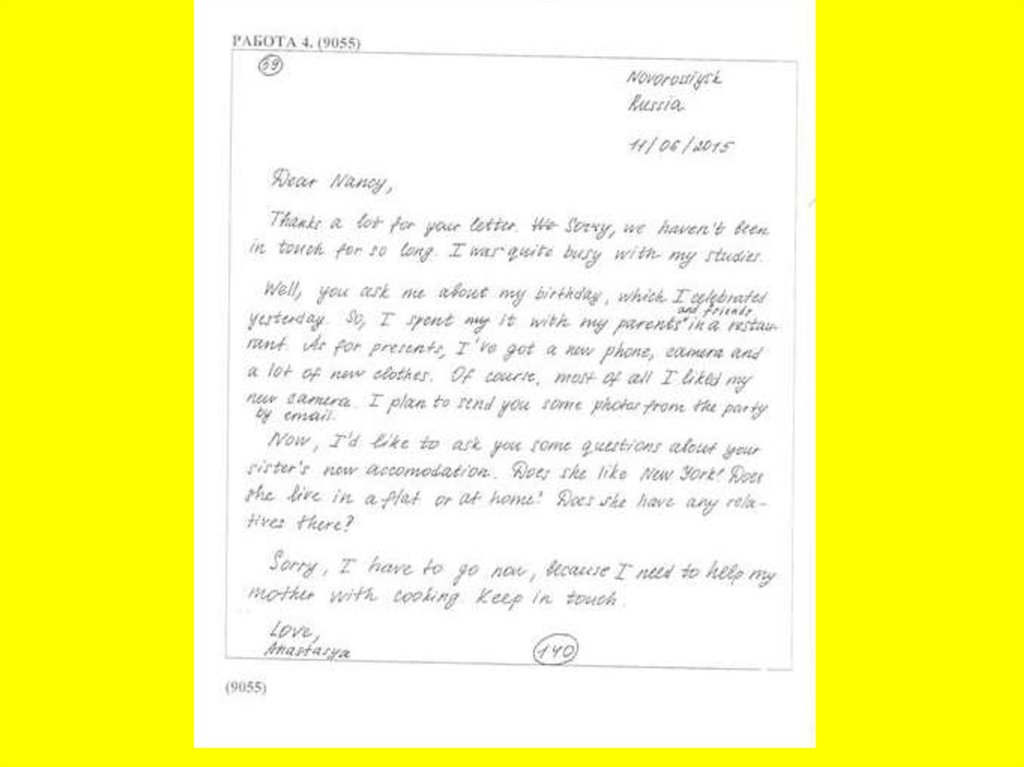 РАБОТА 4. (9055)
39
Novorossiysk
Russia
11/06/2015
Dear Nancy,
Thanks a lot for your letter. We Sorry, we haven't been
in touch for so long. I was quite busy with my studies.
Well, you ask me about my birthday, which I celebrated
and friends
yesterday. So, I spent my it with my parents in a restau-
rant. As for presents, I've got a new phone, camera and
a lot of new clothes. Of course, most of all I liked my
new camera. I plan to send you some photos from the party
by email.
Now, I'd like to ask you some questions about your
sister's new accomodation. Does she like New York? Does
she live in a flat or at home? Does she have any rela-
tives there?
Sorry, I have to go now, because I need to help my
mother with cooking. Keep in touch.
Love,
Anastasya
140
(9055)